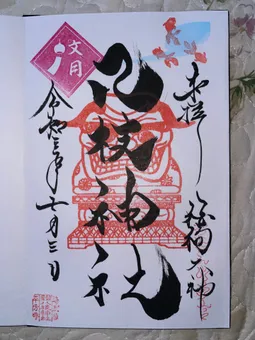 奉拝
狛狗大神
八枝神社
文月
令和三年七月三日